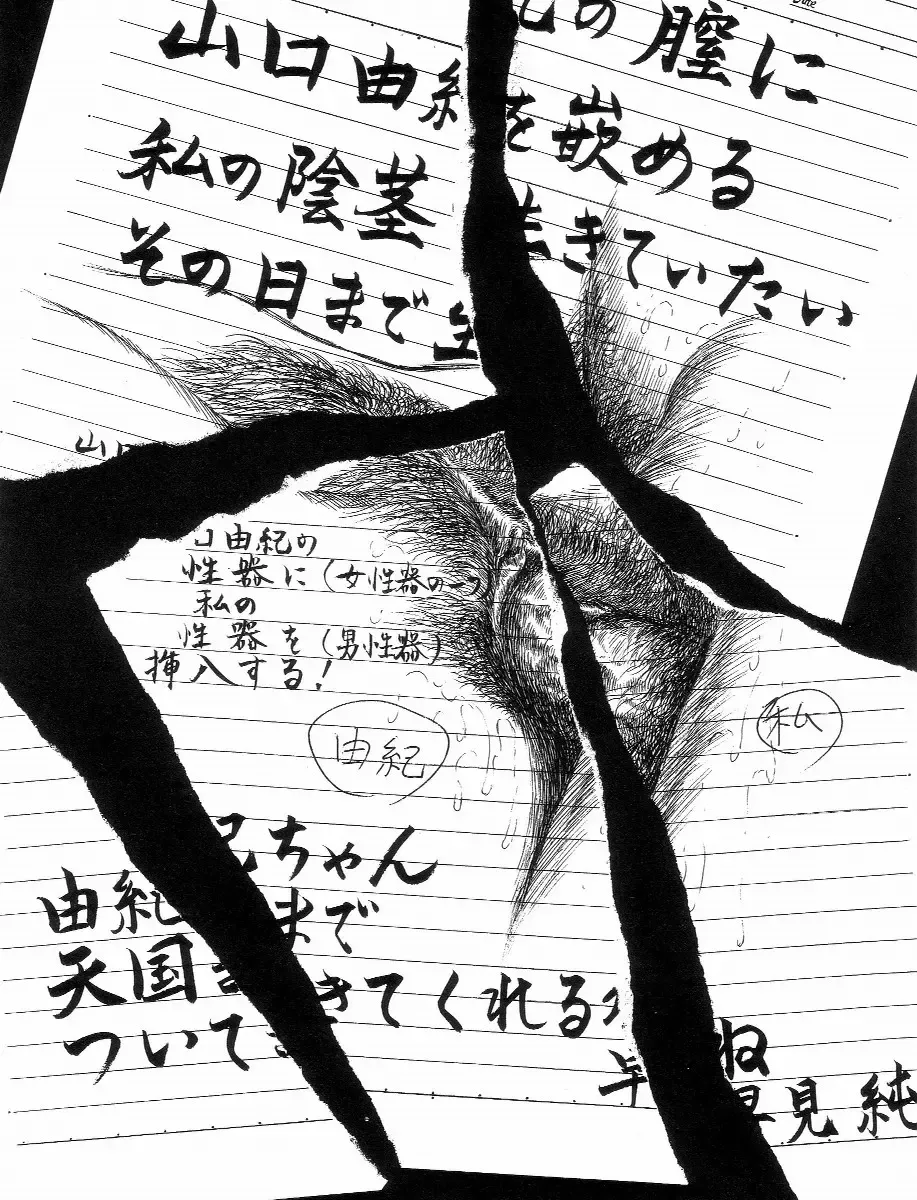 Date
山口由紀の膣に
私の陰茎を嵌める
その日まで生きていたい
山口
口由紀の
性器に(女性器の一つ)
私の
性器を(男性器)
挿入する!
私
由紀
紀ちゃん
由紀 まで
天国
ついてきてくれる
ね
早見純